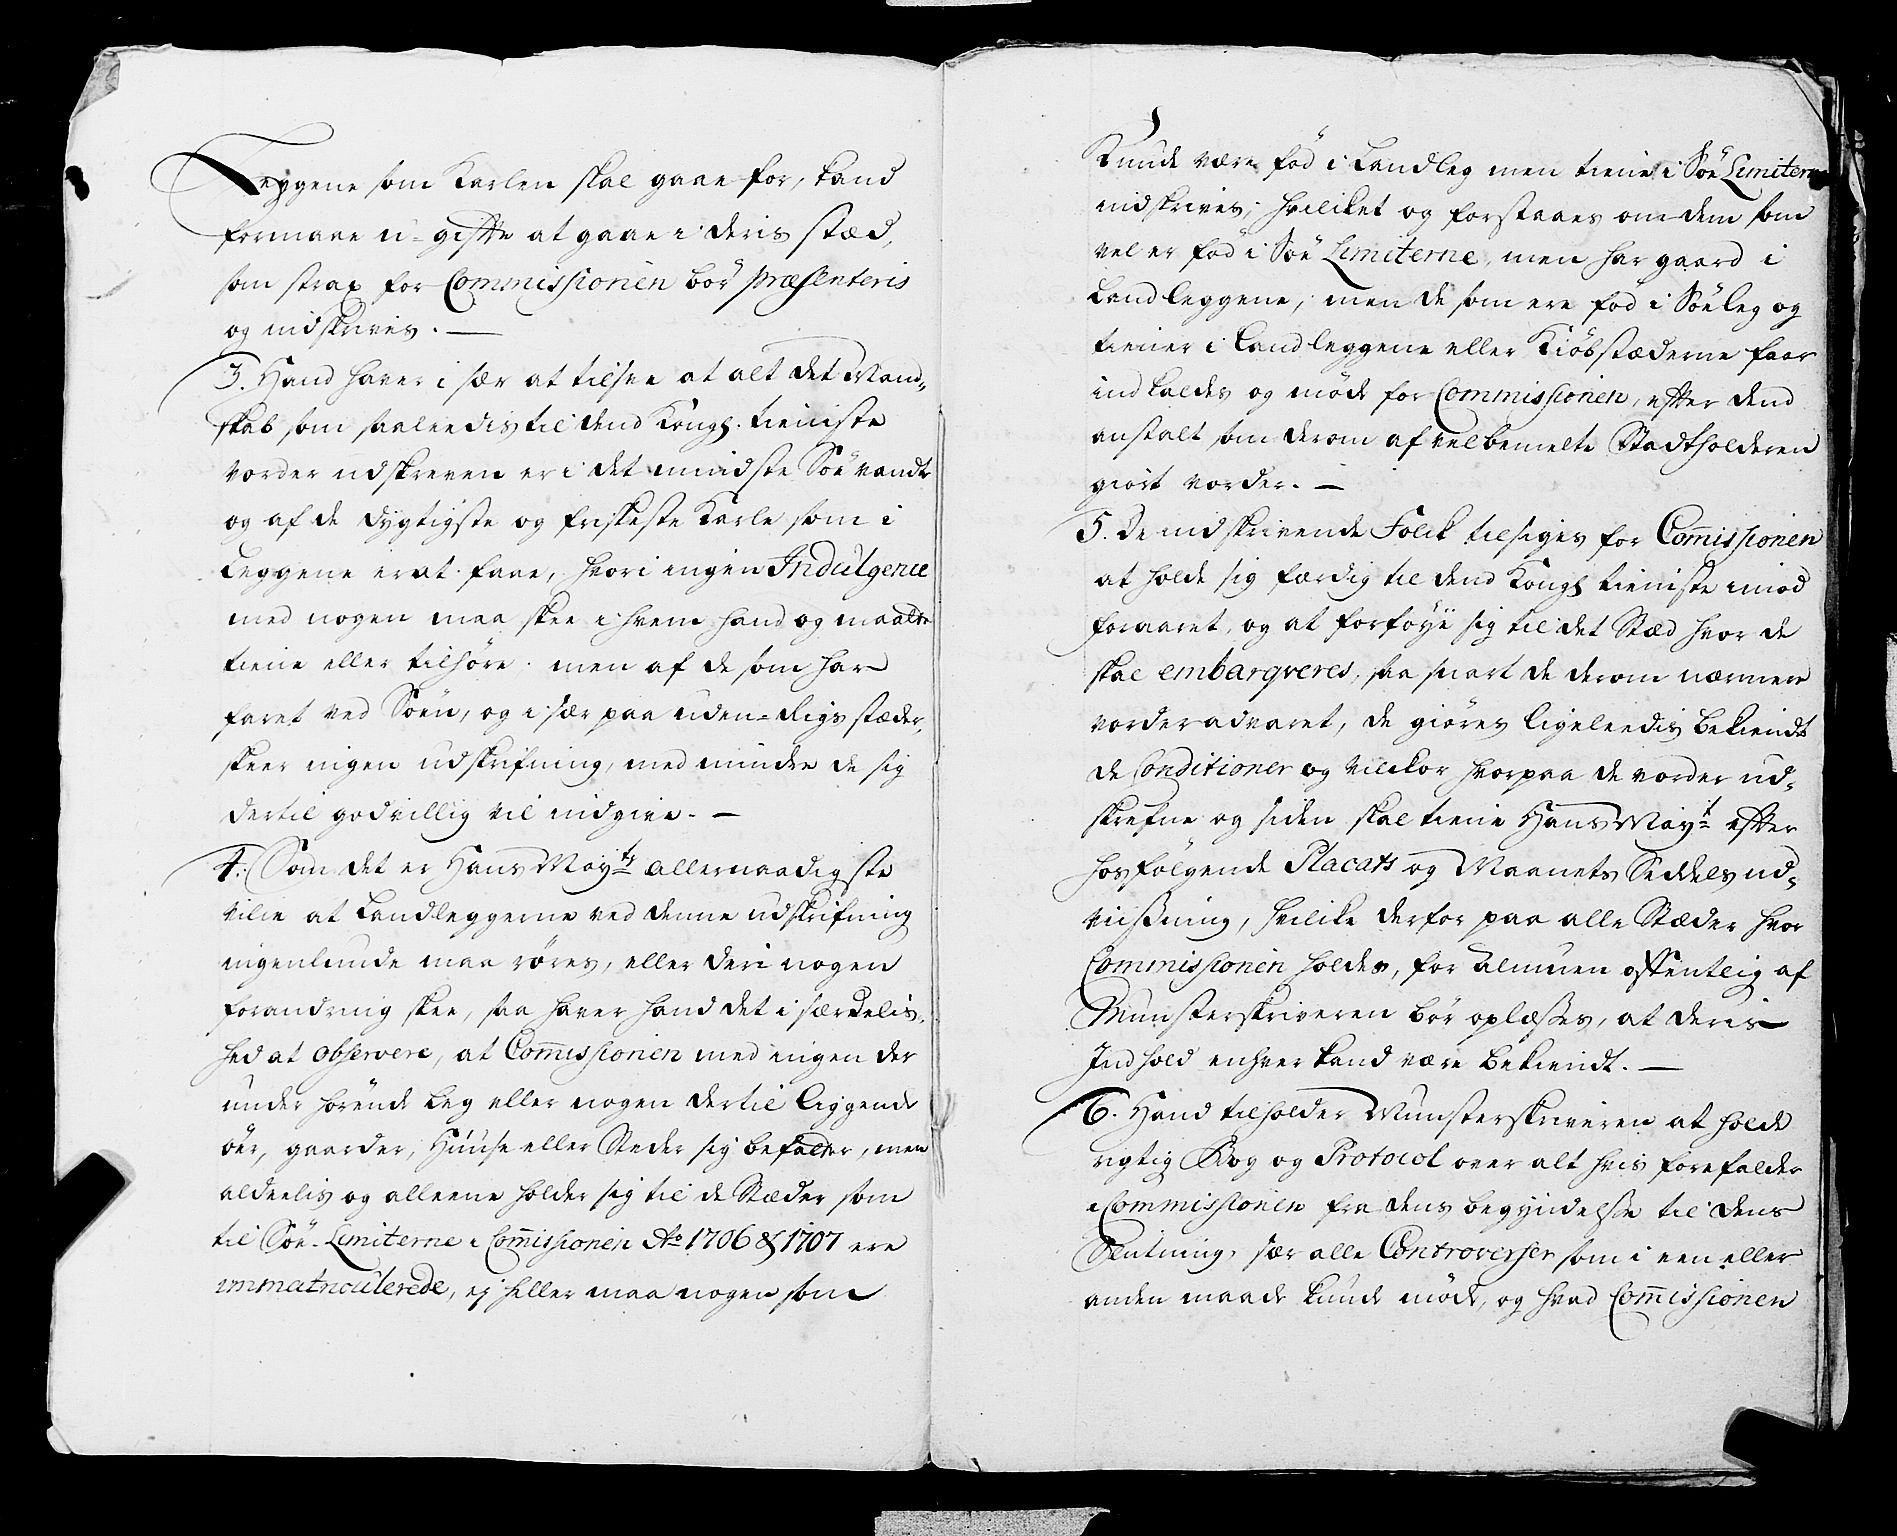 Leggene som Karlen skal gaae for, kand
formaae u-gifte at gaae i deris stæd,
som strax for Commissionen bör præsenteris
og indskrives. —
3. Hand haver i sær at tilsee at alt det Mand-
skab som saaleedis til dend Kongl. tieniste
vorder udskreven er i det mindste Söevandte
og af de dygtigste og friskeste Karle som i
Leggene er at faae, hvori ingen Indulgence
med nogen maa skee i hvem hand og maatte
tiene eller tilhöre. men af de som har
faret ved Söen, og i sær paa uden-Rigs stæder,
skeer ingen udskrifning, med mindre de sig
dertil godvillig vil indgive. —
4. Som det er Hans Mayts allernaadigste
villie at Landleggerne ved denne udskrifning
ingenlunde maa röres, eller deri nogen
forandring skee, saa haver hand det i særdelis-
hed at observere, at Commissionen med ingen der
under hörende Leg eller nogen dertil liggende
öer, gaarder, Huuse eller Steder sig befatter, men
aldeelis og alleene holder sig til de Stæder som
til Söe-Limiterne i Commissionen Ao 1706 & 1707 ere
immatriculerede, ej heller maa nogen som
Kunde være föd i Landleg men tiene i Söe Limiterne
indskrives, hvilket og forstaaes om dem som
vel er föd i Söe Limiterne, men har gaard i
Landleggene, men de som ere föd i Söeleg og
tiener i Landleggene eller Kiöbstæderne faar
indkaldes og möde for Commissionen, efter dend
anstalt som derom af velbemelte Stadtholderen
giort vorder. —
5. De indskrivende Folck tilsiges for Commissionen
at holde sig færdig til dend Kongl tieniste imod
foraaret, og at forföye sig til det Stæd hvor de
skal embarqveres, saa snart de derom nærmere
vorder advaret, de giöres ligeleedis bekiendt
de Conditioner og vilckor hvorpaa de vorder ud-
skrefne og siden skal tiene Hans Mayt efter
hosfölgende Placats og Maanets Seddels ud-
viisning, hvilke derfor paa alle Stæder hvor
Commissionen holdes, for Almuen offentlig af
Munsterskriveren bör oplæsses, at deris
Indhold enhver kand være bekiendt. —
6. Hand tilholder Munsterskriveren at holde
rigtig Bog og Protocol over alt hvis forefalder
i Commissionen fra dens begyndelse til dens
Slutning, sær alle Controverser som i een eller
anden maade kunde möde, og hvad Commissionen